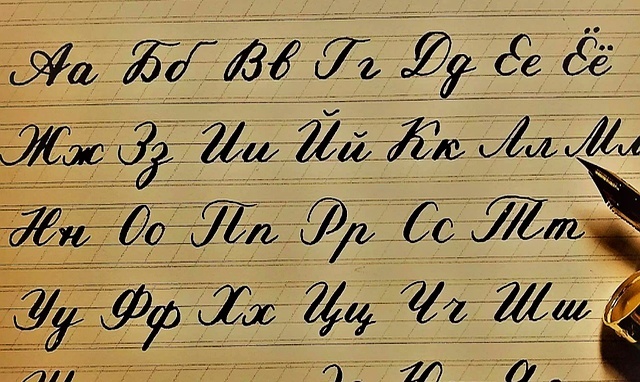 Аа Бб Вв Гг Дд Ее Ёё
Жж Зз Ии Йй Кк Лл Мм
Нн Оо Пп Рр Сс Тт
Уу Фф Хх Цц Чч Шш